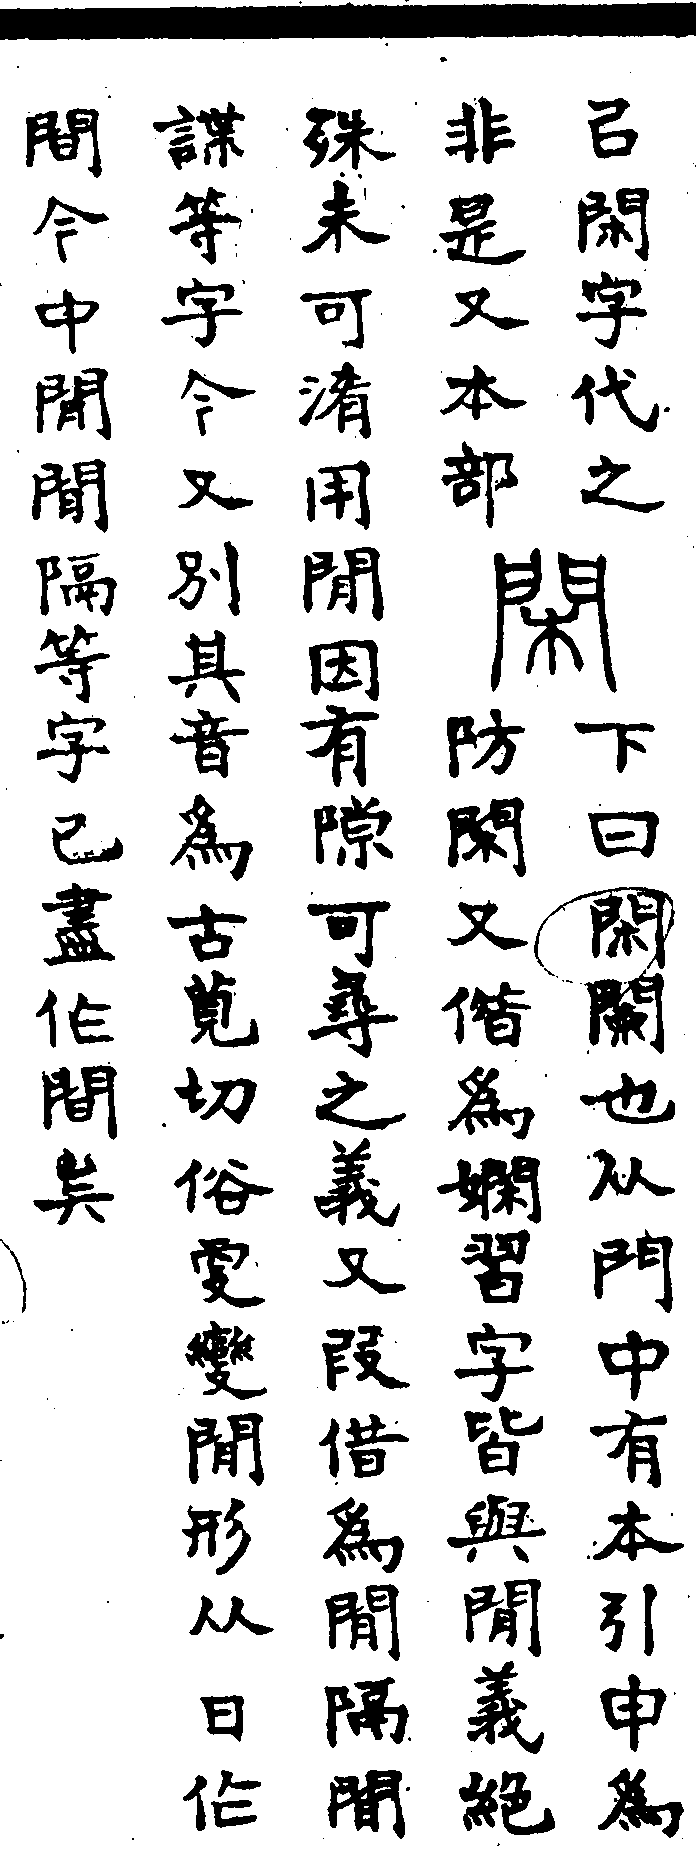 㠯閑字代之
非是又本部
閑
下曰閑闌也从門中有木引申為
防閑又僣為嫻習字皆與閒義絕
殊未可淆用閒因有隙可尋之義又叚借為閒隔閒
諜等字今又別其音為古莧切俗㪅變閒形从日作
間今中閒閒隔等字已盡作間矣